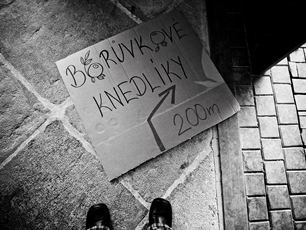 BORŮVKOVÉ
KNEDLÍKY
200m